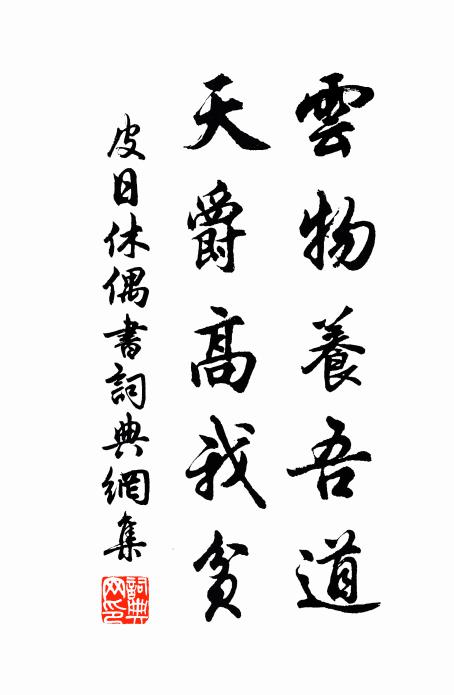 雲物養吾道
天爵高我貧
皮日休偶書詞典網集
詞典網印